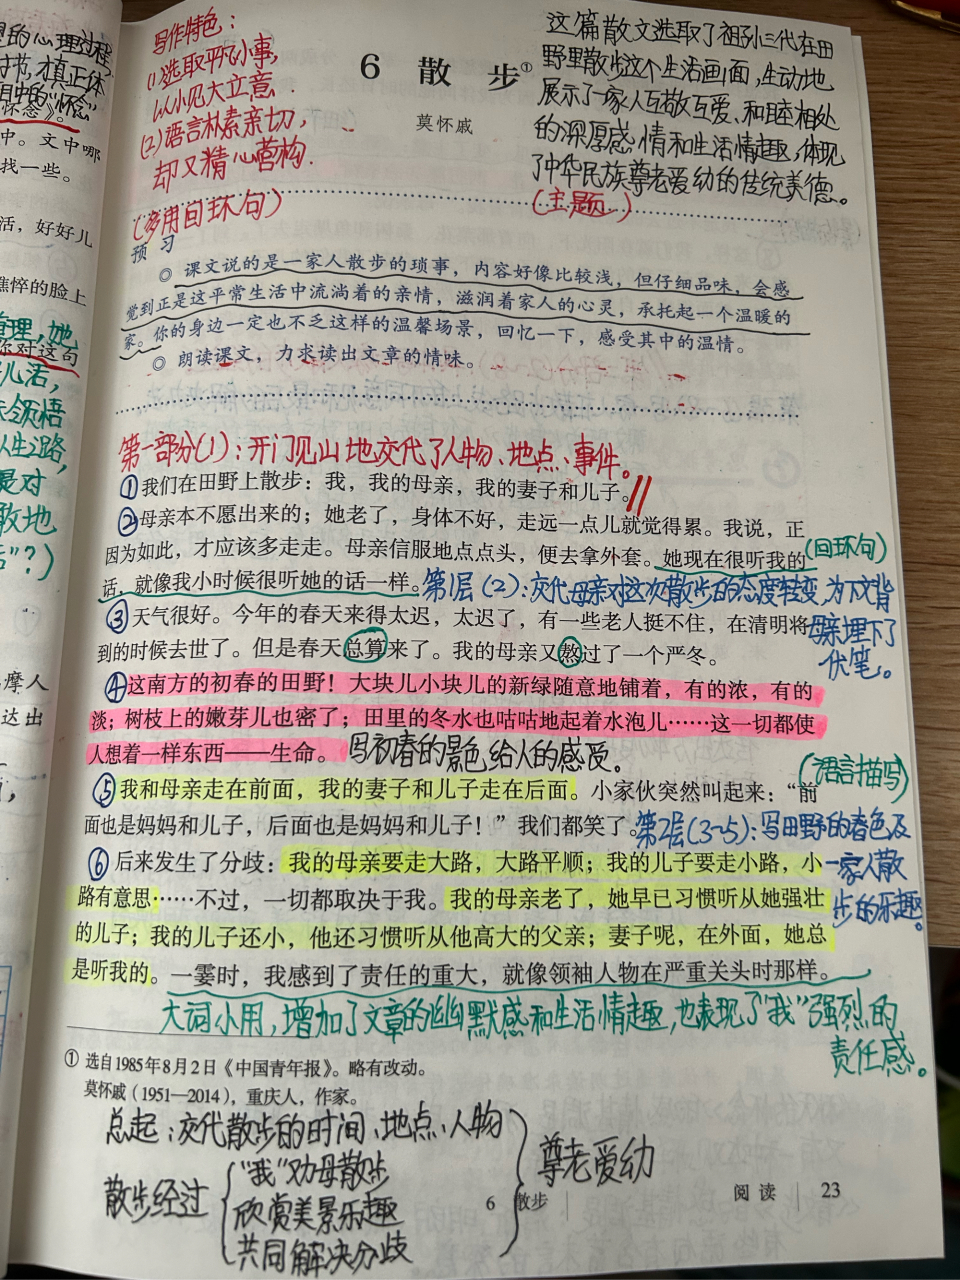 望的心理过程,
时节,才真正体
怀念》。
中。文中哪
找一些。
活,好好儿
憔悴的脸上
你对这句
儿活,
领悟
是对
摩人
达出
写作特色:
(1)选取平凡小事,
以小见大立意.
(2)语言朴素亲切,
却又精心营构.
(多用回环句)
6 散 步①
莫怀戚
这篇散文选取了祖孙三代在田
野里散步这个生活画面,生动地
展示了一家人互敬互爱、和睦相处
的深厚感情和生活情趣,体现
了中华民族尊老爱幼的传统美德。
(主题)
预 习
◎ 课文说的是一家人散步的琐事,内容好像比较浅,但仔细品味,会感
觉到正是这平常生活中流淌着的亲情,滋润着家人的心灵,承托起一个温暖的
家。你的身边一定也不乏这样的温馨场景,回忆一下,感受其中的温情。
◎ 朗读课文,力求读出文章的情味。
第一部分(1):开门见山地交代了人物、地点、事件。
①我们在田野上散步:我,我的母亲,我的妻子和儿子。
②母亲本不愿出来的;她老了,身体不好,走远一点儿就觉得累。我说,正
因为如此,才应该多走走。母亲信服地点点头,便去拿外套。她现在很听我的
(回环句)
话,就像我小时候很听她的话一样。
第1层(2):交代母亲对这次散步的态度转变,为下文背
母亲埋下了
伏笔。
③天气很好。今年的春天来得太迟,太迟了,有一些老人挺不住,在清明将
到的时候去世了。但是春天总算来了。我的母亲又熬过了一个严冬。
④这南方的初春的田野!大块儿小块儿的新绿随意地铺着,有的浓,有的
淡;树枝上的嫩芽儿也密了;田里的冬水也咕咕地起着水泡儿……这一切都使
人想着一样东西——生命。
写初春的景色给人的感受。
⑤我和母亲走在前面,我的妻子和儿子走在后面。小家伙突然叫起来:“前
(语言描写)
面也是妈妈和儿子,后面也是妈妈和儿子!”我们都笑了。
第2层(3~5):写田野的春色及
一家人散
步的乐趣。
⑥后来发生了分歧:我的母亲要走大路,大路平顺;我的儿子要走小路,小
路有意思……不过,一切都取决于我。我的母亲老了,她早已习惯听从她强壮
的儿子;我的儿子还小,他还习惯听从他高大的父亲;妻子呢,在外面,她总
是听我的。一霎时,我感到了责任的重大,就像领袖人物在严重关头时那样。
大词小用,增加了文章的幽默感和生活情趣,也表现了“我”强烈的
责任感。
① 选自1985年8月2日《中国青年报》。略有改动。
莫怀戚(1951—2014),重庆人,作家。
总起:交代散步的时间、地点、人物
散步经过
“我”劝母散步
欣赏美景乐趣
共同解决分歧
尊老爱幼
6 散步
阅读 23